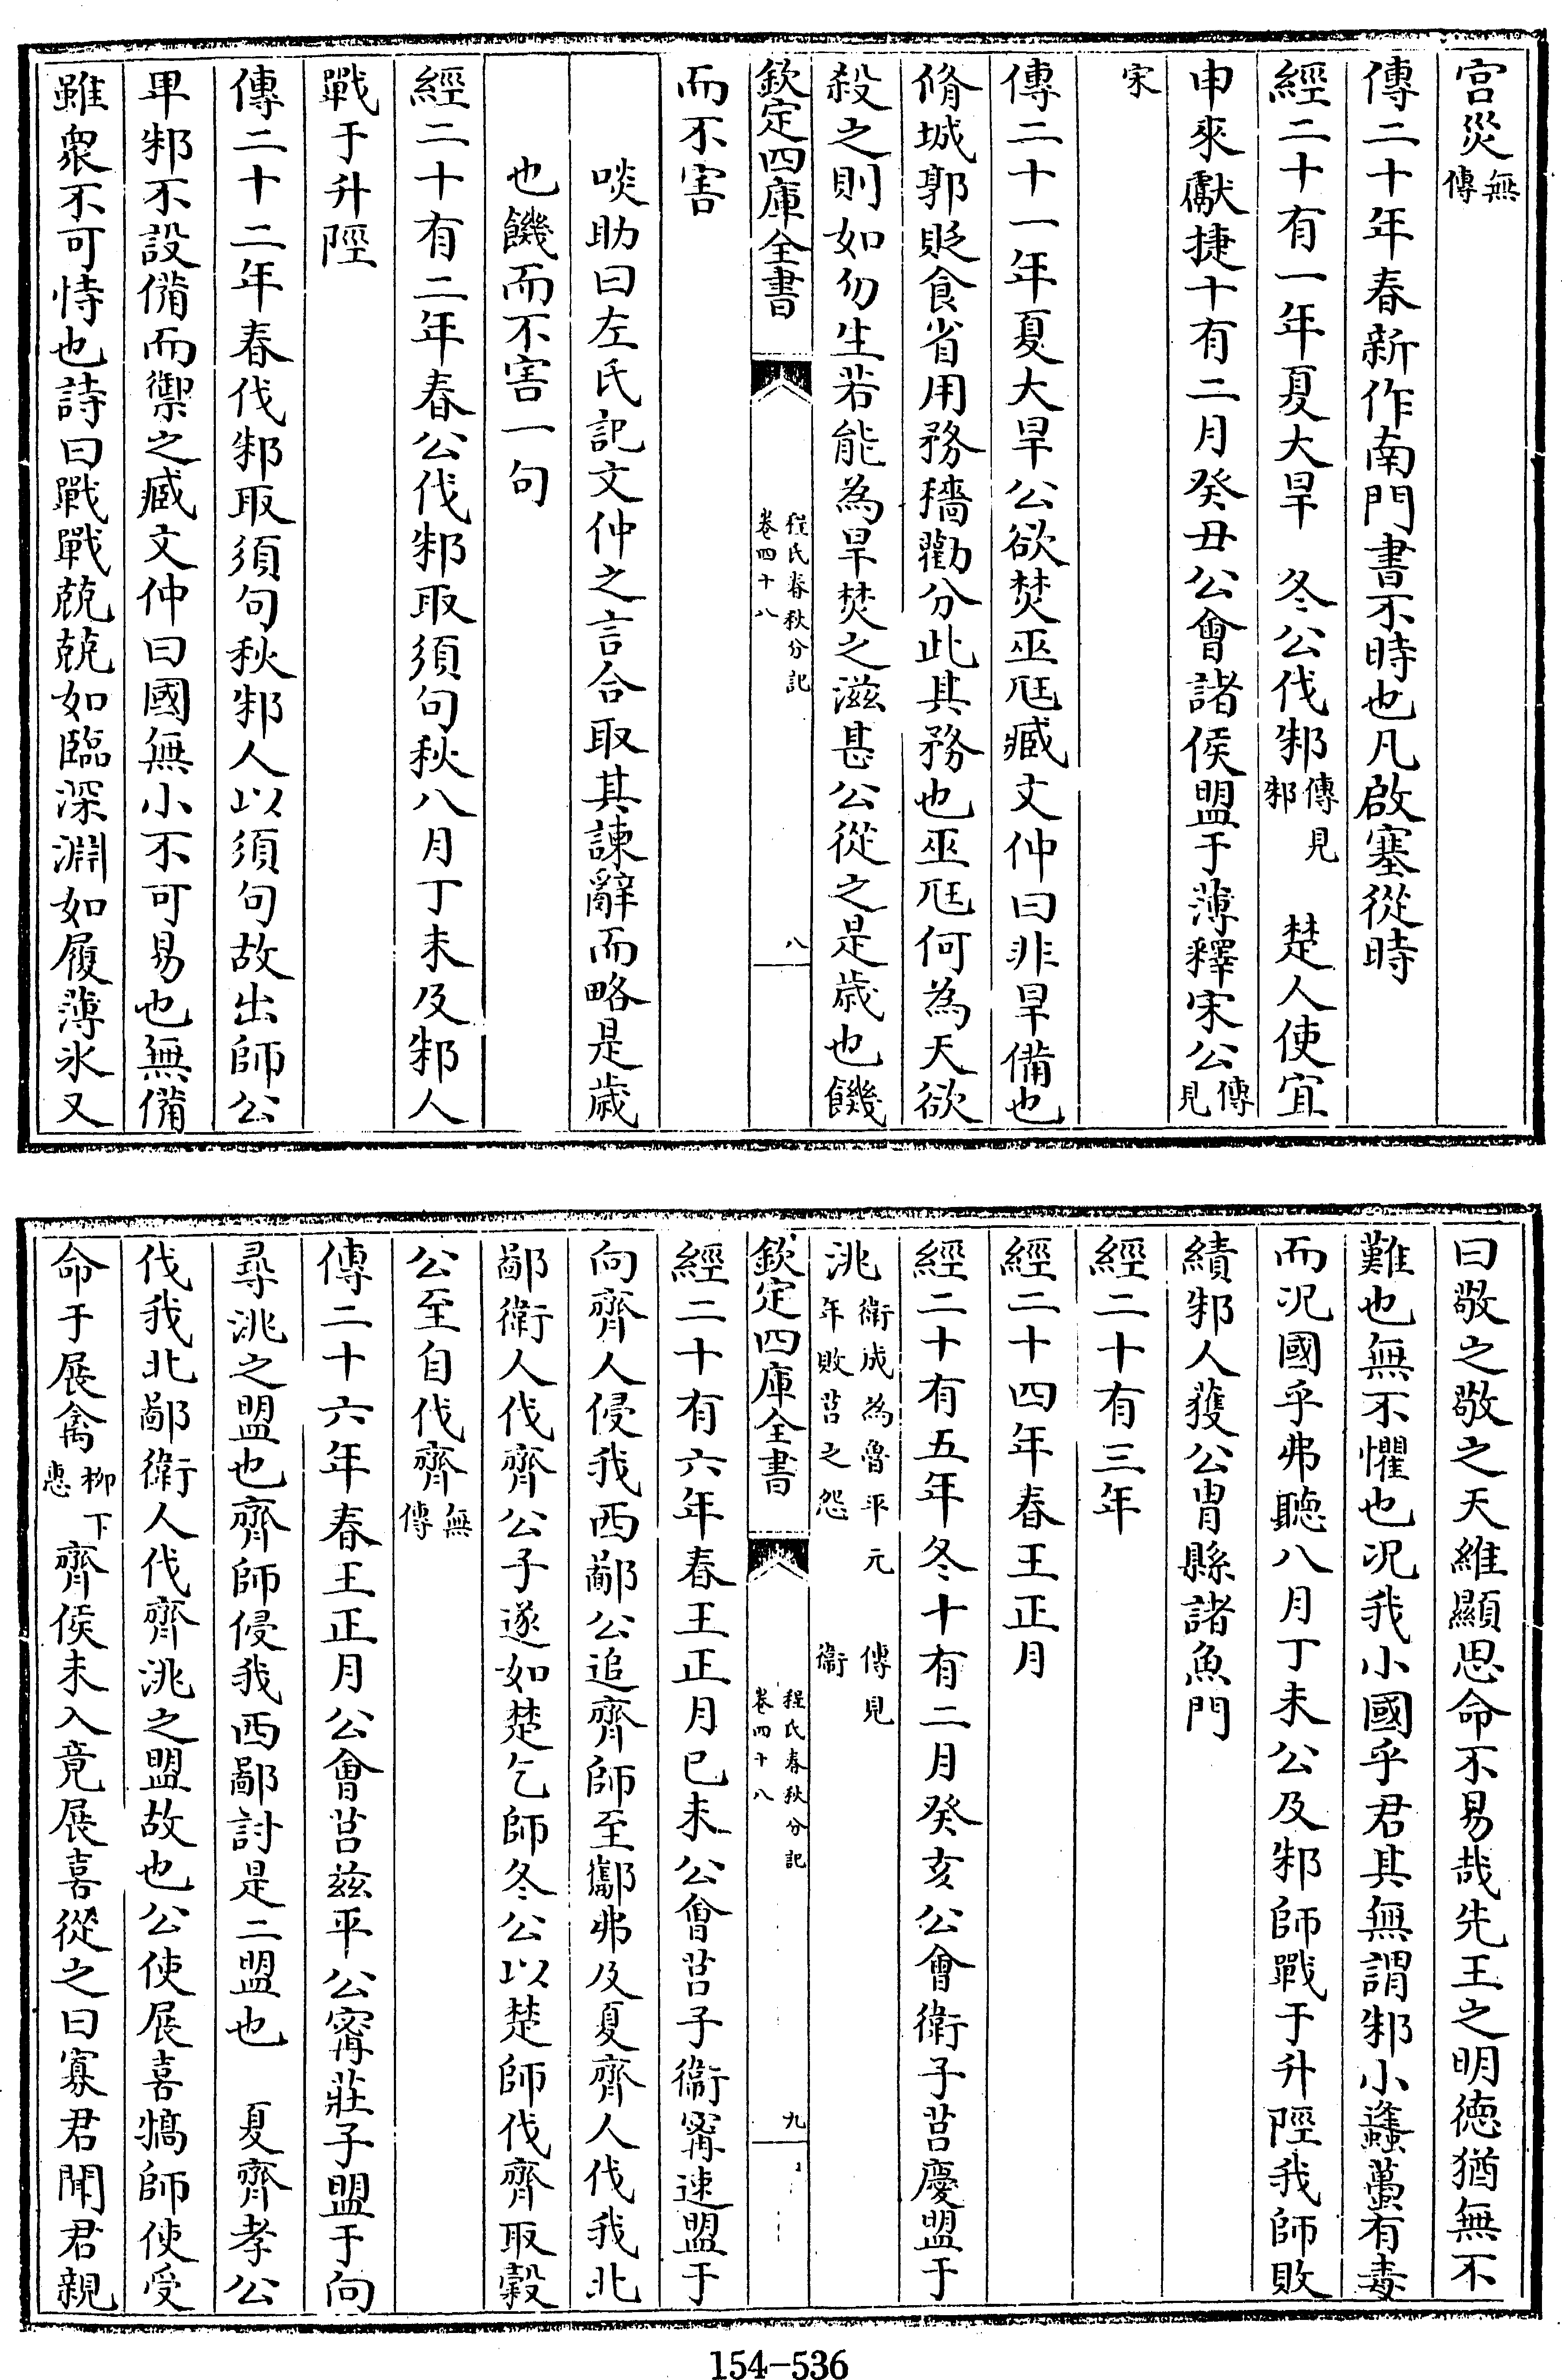 宫災無傳
傳二十年春新作南門書不時也凡啟塞從時
經二十有一年夏大旱　冬公伐邾傳見邾　楚人使宜
申來獻捷十有二月癸丑公會諸侯盟于薄釋宋公傳見
宋
傳二十一年夏大旱公欲焚巫尫臧文仲曰非旱備也
脩城郭貶食省用務穡勸分此其務也巫尫何為天欲
殺之則如勿生若能為旱焚之滋甚公從之是歲也饑
欽定四庫全書
程氏春秋分記
卷四十八
八
而不害
啖助曰左氏記文仲之言合取其諫辭而略是歲
也饑而不害一句
經二十有二年春公伐邾取須句秋八月丁未及邾人
戰于升陘
傳二十二年春伐邾取須句秋邾人以須句故出師公
卑邾不設備而禦之臧文仲曰國無小不可易也無備
雖衆不可恃也詩曰戰戰兢兢如臨深淵如履薄氷又
曰敬之敬之天維顯思命不易哉先王之明徳猶無不
難也無不懼也况我小國乎君其無謂邾小蠭蠆有毒
而况國乎弗聽八月丁未公及邾師戰于升陘我師敗
績邾人獲公胄縣諸魚門
經二十有三年
經二十四年春王正月
經二十有五年冬十有二月癸亥公會衛子莒慶盟于
洮衛成為魯平元年敗莒之怨　傳見衛
欽定四庫全書
程氏春秋分記
卷四十八
九
經二十有六年春王正月已未公㑹莒子衞甯速盟于
向齊人侵我西鄙公追齊師至酅弗及夏齊人伐我北
鄙衛人伐齊公子遂如楚乞師冬公以楚師伐齊取穀
公至自伐齊無傳
傳二十六年春王正月公會莒兹平公甯莊子盟于向
尋洮之盟也齊師侵我西鄙討是二盟也　夏齊孝公
伐我北鄙衛人伐齊洮之盟故也公使展喜犒師使受
命于展禽柳下惠齊侯未入竟展喜從之曰寡君聞君親
154-536